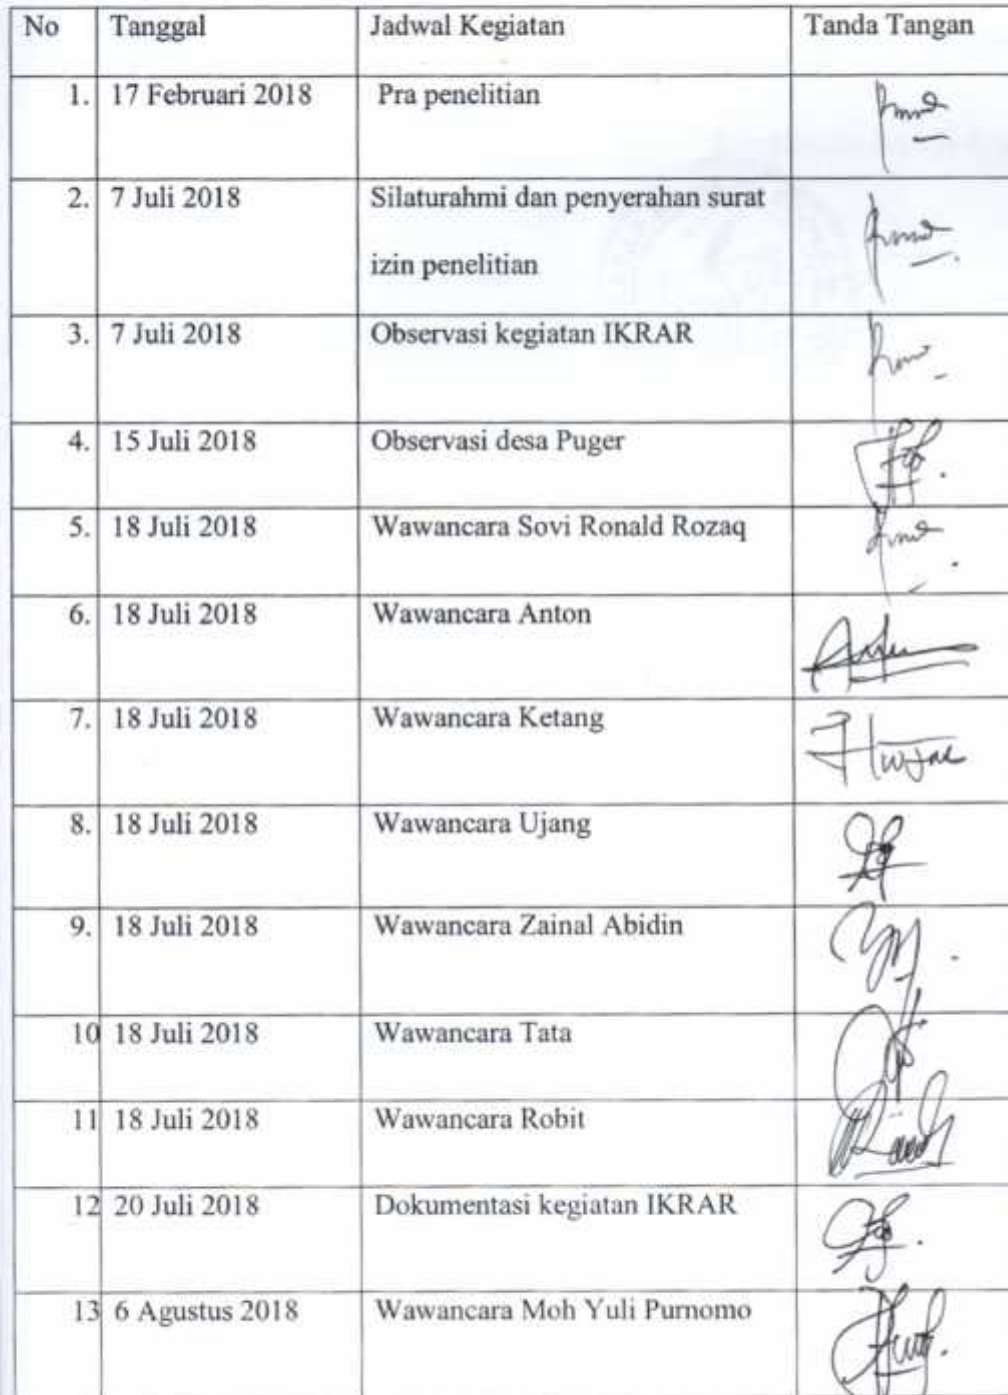 No Tanggal Jadwal Kegiatan Tanda Tangan
1. 17 Februari 2018 Pra penelitian
2. 7 Juli 2018 Silaturahmi dan penyerahan surat
izin penelitian
3. 7 Juli 2018 Observasi kegiatan IKRAR
4. 15 Juli 2018 Observasi desa Puger
5. 18 Juli 2018 Wawancara Sovi Ronald Rozaq
6. 18 Juli 2018 Wawancara Anton
7. 18 Juli 2018 Wawancara Ketang
8. 18 Juli 2018 Wawancara Ujang
9. 18 Juli 2018 Wawancara Zainal Abidin
10 18 Juli 2018 Wawancara Tata
11 18 Juli 2018 Wawancara Robit
12 20 Juli 2018 Dokumentasi kegiatan IKRAR
13 6 Agustus 2018 Wawancara Moh Yuli Purnomo